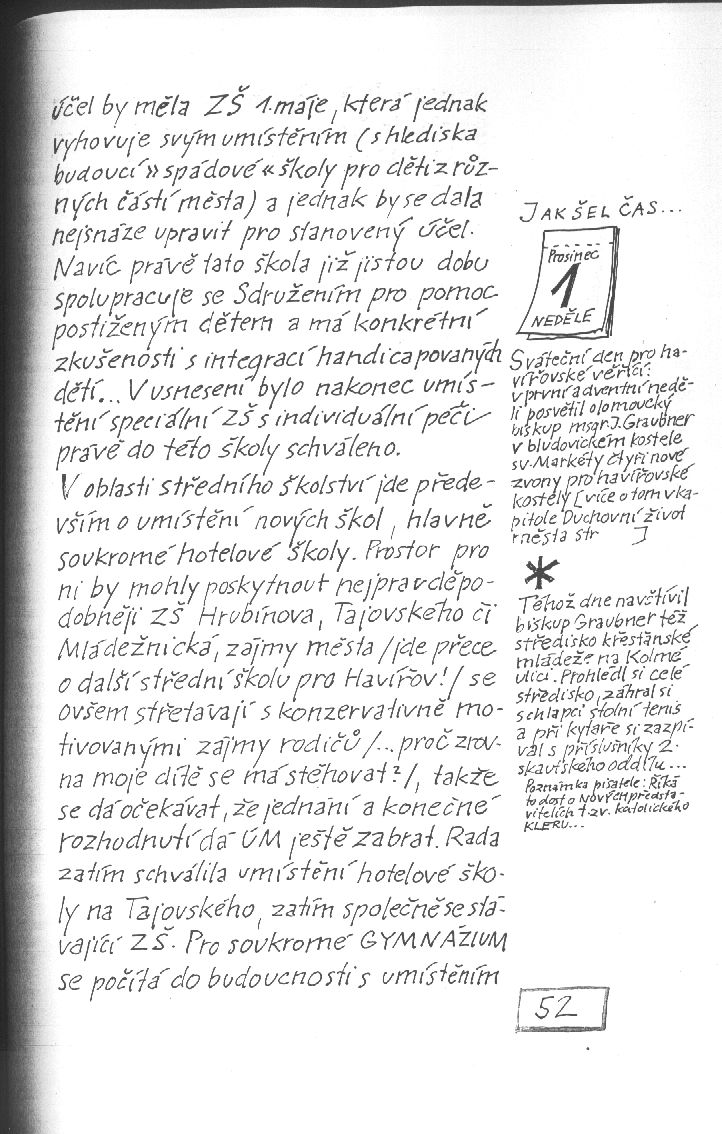 účel by měla ZŠ 1. máje, která jednak
vyhovuje svým umístěním (s hlediska
budoucí »spádové« školy pro děti z růz-
ných částí města) a jednak by se dala
nejsnáze upravit pro stanovený účel.
Navíc právě tato škola již jistou dobu
spolupracuje se Sdružením pro pomoc
postiženým dětem a má konkrétní
zkušenosti s integrací handicapovaných
dětí... V usnesení bylo nakonec umís-
tění speciální ZŠ s individuální péčí
právě do této školy schváleno.
V oblasti středního školství jde přede-
vším o umístění nových škol, hlavně
soukromé hotelové školy. Prostor pro
ni by mohly poskytnout nejpravděpo-
dobněji ZŠ Hrubínova, Tajovského či
Mládežnická, zájmy města /jde přece
o další střední školu pro Havířov!/ se
ovšem střetávají s konzervativně mo-
tivovanými zájmy rodičů /...proč zrov-
na moje dítě se má stěhovat?/, takže
se dá očekávat, že jednání a konečné
rozhodnutí dá ÚM ještě zabrat. Rada
zatím schválila umístění hotelové ško-
ly na Tajovského, zatím společně se stá-
vající ZŠ. Pro soukromé GYMNÁZIUM
se počítá do budoucnosti s umístěním
JAK ŠEL ČAS...
Prosinec
1
NEDĚLE
Sváteční den pro ha-
vířovské věřící:
v první adventní nedě-
li posvětil olomoucký
biskup msgr. J. Graubner
v bludovickém kostele
sv. Markéty čtyři nové
zvony pro havířovské
kostely [více o tom v ka-
pitole Duchovní život
města str ]
*
Téhož dne navštívil
biskup Graubner též
středisko křesťanské
mládeže na Kolmé
ulici. Prohlédl si celé
středisko, zahrál si
s chlapci stolní tenis
a při kytaře si zazpí-
val s příslušníky 2.
skautského oddílu...
Poznámka pisatele: Říká
to dost o NOVÝCH předsta-
vitelích tzv. katolického
KLERU...
52